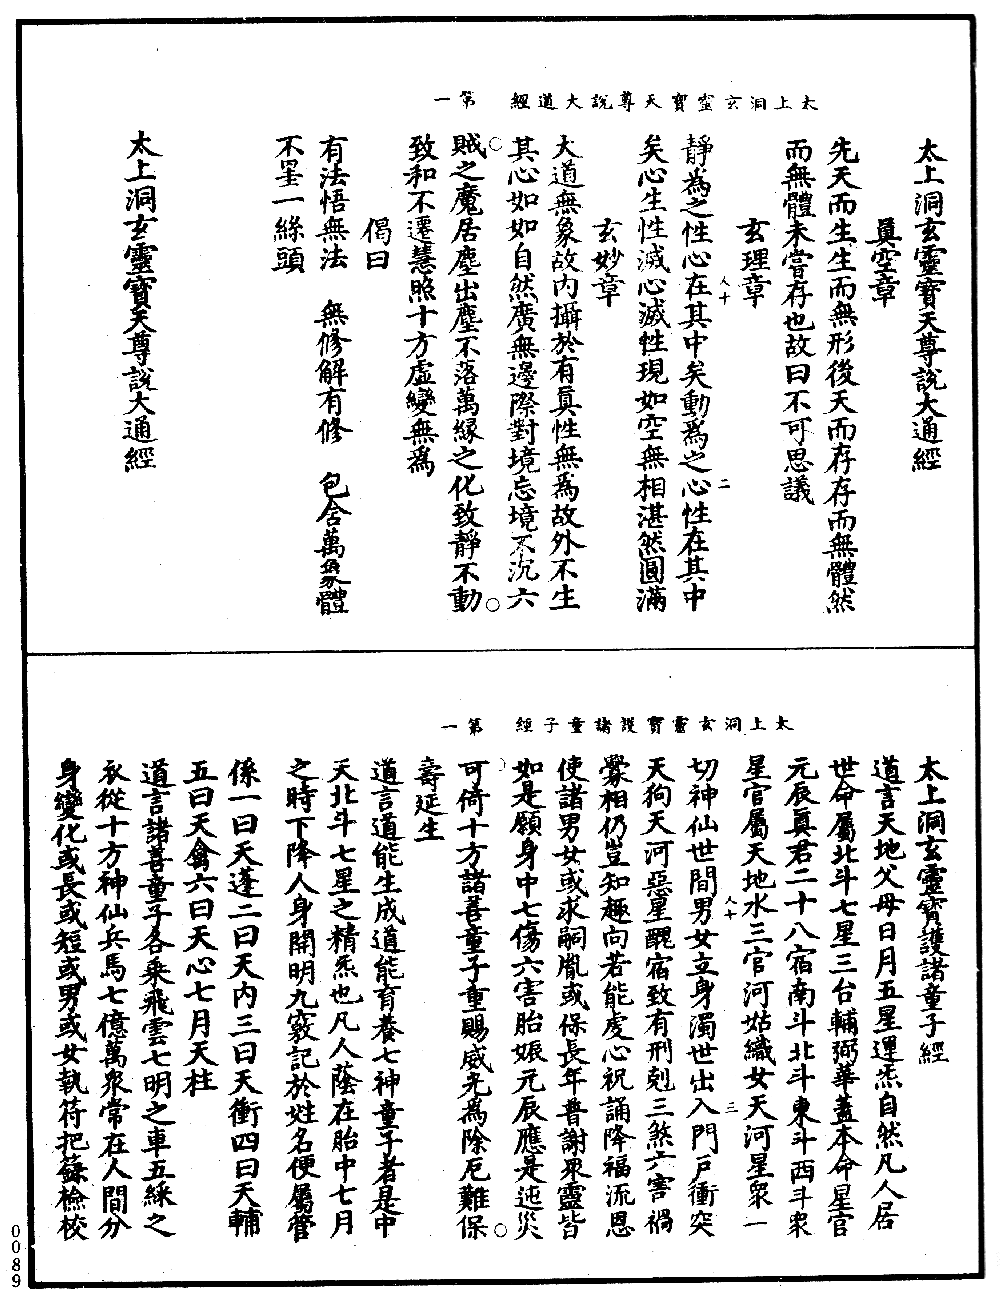 太上洞玄靈寶天尊說大通經 第一
太上洞玄靈寶天尊說大通經
真空章
先天而生生而無形後天而存存而無體然
而無體未嘗存也故曰不可思議
玄理章
靜為之性心在其中矣動為之心性在其中
矣心生性滅心滅性現如空無相湛然圓滿
玄妙章
大道無象故內攝於有真性無為故外不生
其心如如自然廣無邊際對境忘境不沉六
賊之魔居塵出塵不落萬緣之化致靜不動
致和不遷慧照十方虛變無為
偈曰
有法悟無法 無修解有修 包含萬象體
不罣一絲頭
太上洞玄靈寶天尊說大通經
人十
二
太上洞玄靈寶護諸童子經 第一
太上洞玄靈寶護諸童子經
道言天地父母日月五星運炁自然凡人居
世命屬北斗七星三台輔弼華蓋本命星官
元辰真君二十八宿南斗北斗東斗西斗眾
星官屬天地水三官河姑織女天河星眾一
切神仙世間男女立身濁世出入門戶衝突
天狗天河惡星醜宿致有刑剋三煞六害禍
釁相仍豈知趣向若能虔心祝誦降福流恩
使諸男女或求嗣胤或保長年普謝眾靈皆
如是願身中七傷六害胎娠元辰應是迍災
可倚十方諸善童子重賜威光為除厄難保
壽延生
道言道能生成道能育養七神童子者是中
天北斗七星之精炁也凡人蔭在胎中七月
之時下降人身開明九竅記於姓名便屬管
係一曰天蓬二曰天內三曰天衝四曰天輔
五曰天禽六曰天心七月天柱
道言諸善童子各乘飛雲七明之車五綵之
衣從十方神仙兵馬七億萬眾常在人間分
身變化或長或短或男或女執符把籙檢校
人十
三
0089